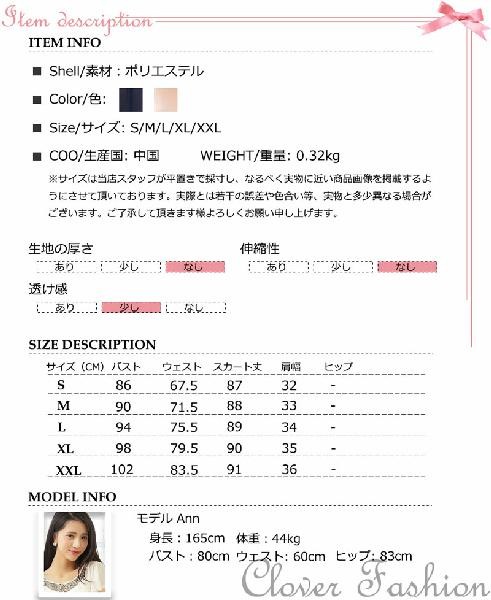 Item description
ITEM INFO
■ Shell/素材：ポリエステル
■ Color/色:
■ Size/サイズ: S/M/L/XL/XXL
■ COO/生産国: 中国 WEIGHT/重量: 0.32kg
※サイズは当店スタッフが平置きで採寸し、なるべく実物に近い商品画像を掲載するよ
うにさせて頂いております。実際とは若干の誤差や色合い等、実物と多少異なる場合が
ございます。ご了承して頂きます様よろしくお願い申し上げます。
生地の厚さ 伸縮性
あり 少し なし あり 少し なし
透け感
あり 少し なし
SIZE DESCRIPTION
サイズ（CM） バスト ウェスト スカート丈 肩幅 ヒップ
S 86 67.5 87 32 -
M 90 71.5 88 33 -
L 94 75.5 89 34 -
XL 98 79.5 90 35 -
XXL 102 83.5 91 36 -
MODEL INFO
モデル Ann
身長：165cm 体重：44kg
バスト：80cm ウェスト: 60cm ヒップ: 83cm
Clover Fashion